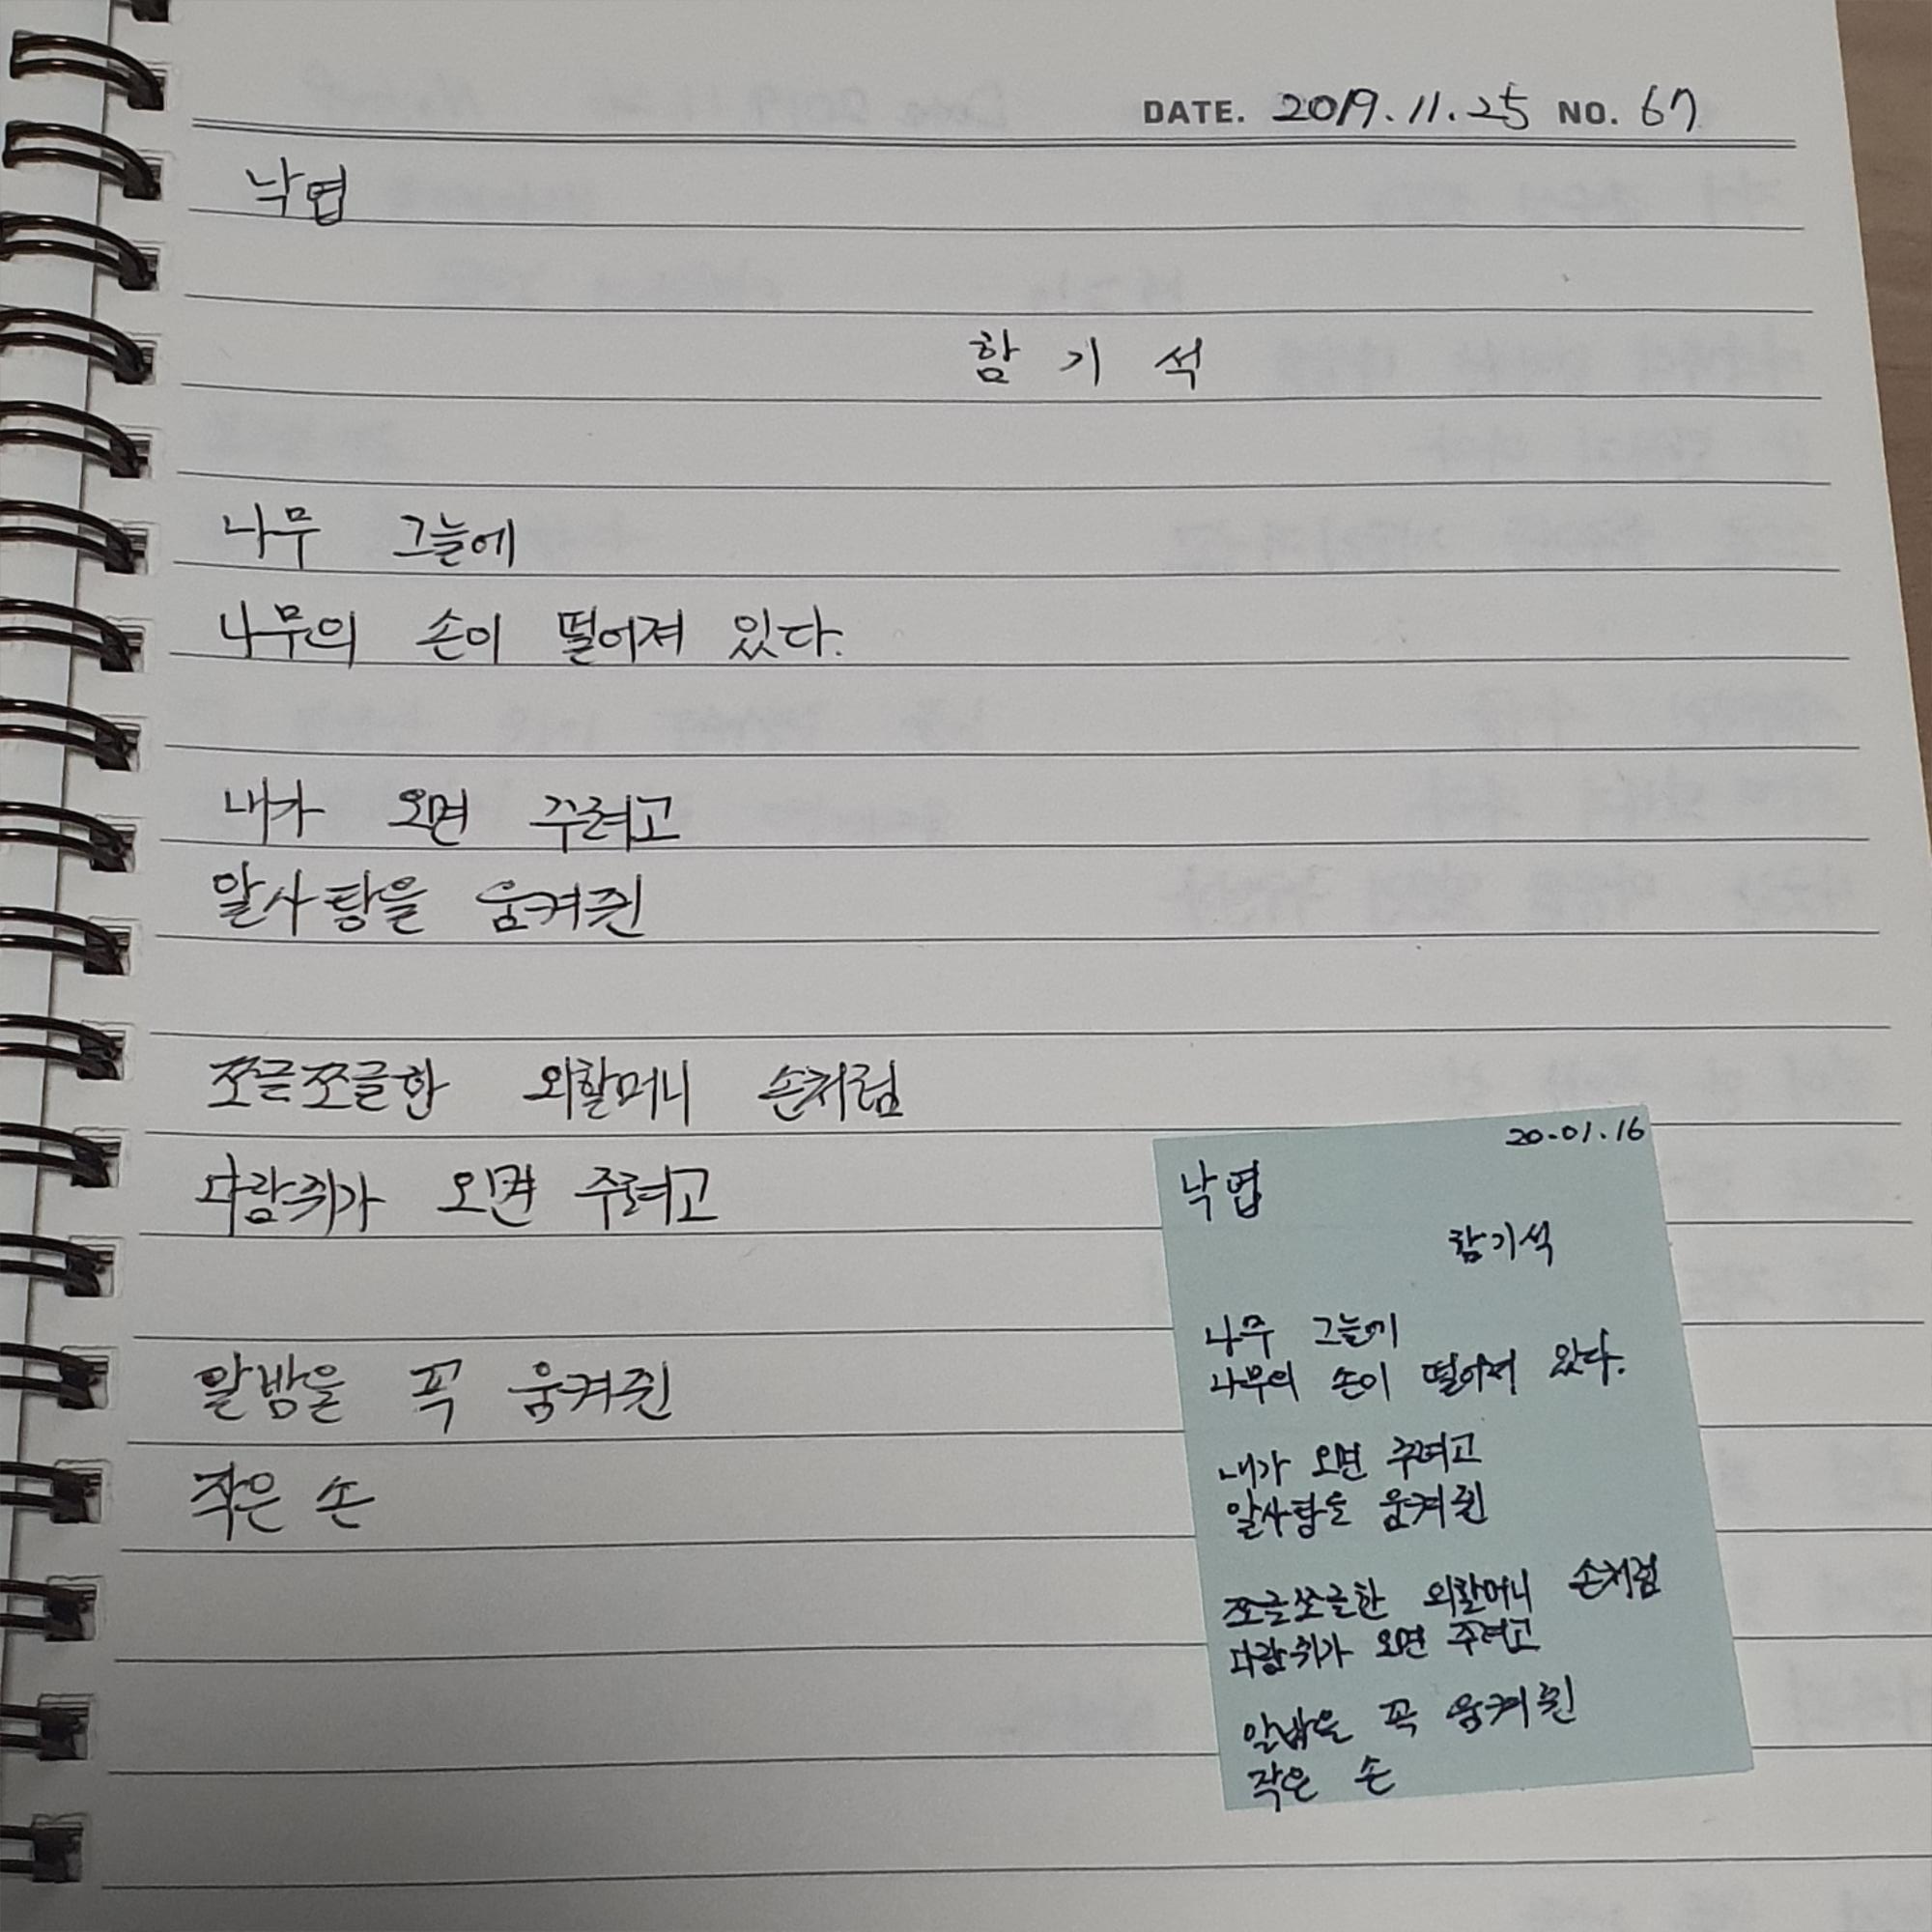 DATE. 2019.11.25 NO. 67
낙엽
함 기 석
나무 그늘에
나무의 손이 떨어져 있다.
내가 오면 주려고
알사탕을 움켜쥔
쪼글쪼글한 외할머니 손처럼
다람쥐가 오면 주려고
알밤을 꼭 움켜쥔
작은 손
20.01.16
낙엽
함기석
나무 그늘에
나무의 손이 떨어져 있다.
내가 오면 주려고
알사탕을 움켜쥔
쪼글쪼글한 외할머니 손처럼
다람쥐가 오면 주려고
알밤을 꼭 움켜쥔
작은 손